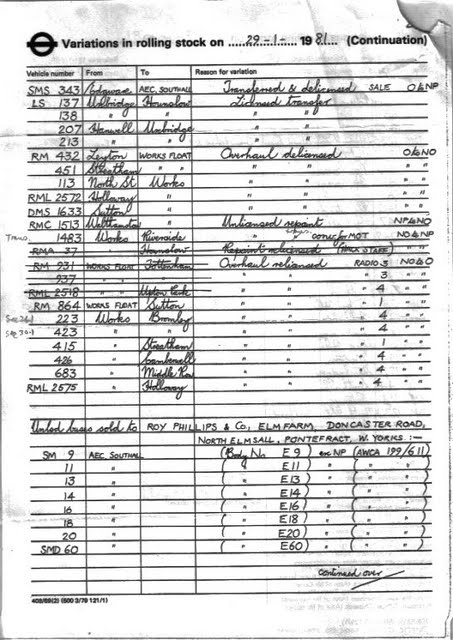 Variations in rolling stock on 29-1- 1981. (Continuation)
Vehicle number From To Reason for variation
SMS 343 Edgware AEC, SOUTHALL Transferred & delicensed SALE O to NP
LS 137 Uxbridge Hounslow Licensed transfer
138 " " " "
207 Hanwell Uxbridge " "
213 " " " "
RM 432 Leyton WORKS FLOAT Overhaul delicensed O to NO
451 Streatham " " " " " "
113 North St Works " " " "
RML 2572 Holloway " " " " "
DMS 1633 Sutton " " " " "
RMC 1513 Walthamstow " Unlicensed repaint NP to NO
Trans. 1483 Works Riverside " " conv for MOT NO to NP
RMA 37 " Hounslow Repaint relicensed (AWCA STAFF) " "
RM 931 WORKS FLOAT Tottenham Overhaul relicensed RADIO 3 NO to O
937 " " " " " 3 " "
RML 2518 " " Upton Park " " 4 " "
RM 864 WORKS FLOAT Sutton " " 1 " "
223 Works Bromley " " 4 " "
See 30-1 423 " " " " 4 " "
415 " Streatham " " 1 " "
426 " Camberwell " " 4 " "
683 " Middle Row " " 4 " "
RML 2575 " Holloway " " 4 " "
Unlcd buses sold to ROY PHILLIPS & Co, ELM FARM, DONCASTER ROAD,
NORTH ELMSALL, PONTEFRACT, W. YORKS :-
SM 9 AEC, SOUTHALL (Body No E9) exc NP (AWCA 199/611)
11 " ( " E11 ) " " ( " " )
13 " ( " E13 ) " " ( " " )
14 " ( " E14 ) " " ( " " )
16 " ( " E16 ) " " ( " " )
18 " ( " E18 ) " " ( " " )
20 " ( " E20 ) " " ( " " )
SMD 60 " ( " E60 ) " " ( " " )
continued over
408/69(2) (500 3/79 121/1)